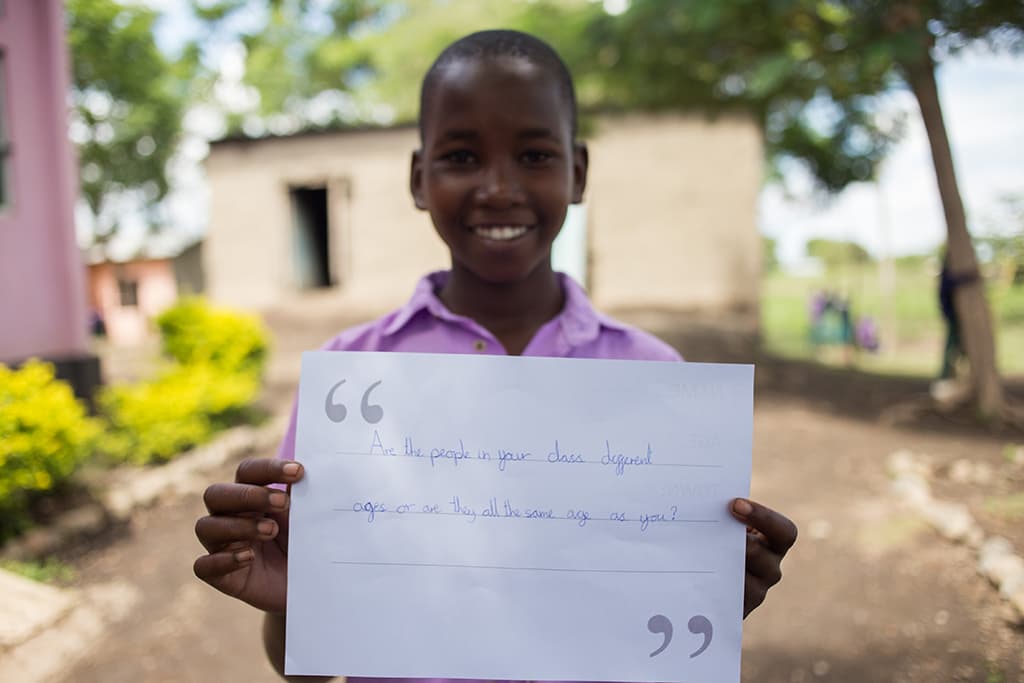 Are the people in your class different
ages or are they all the same age as you?